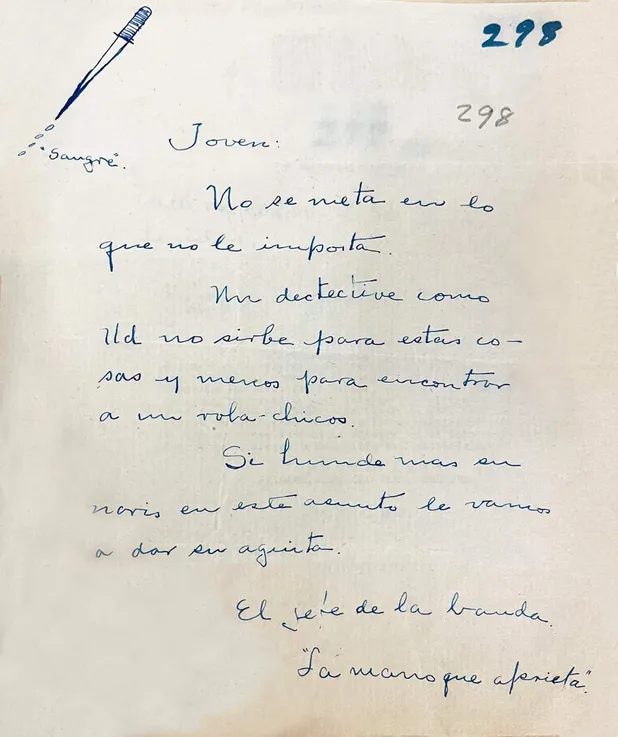 298
298
"Sangre".
Joven:
No se meta en lo
que no le importa.
Un dectective como
Ud no sirbe para estas co-
sas y menos para encontrar
a un roba-chicos.
Si hunde mas su
naris en este asunto le vamos
a dar su aguita.
El jefe de la banda.
"La mano que aprieta".